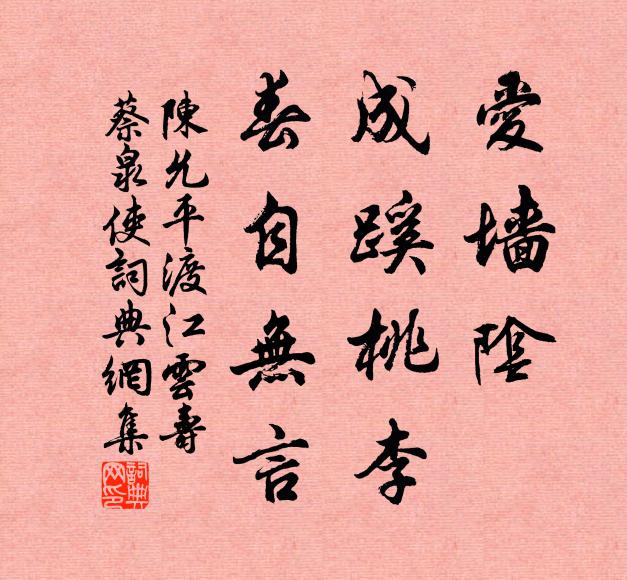 愛墻陰
成蹊桃李
春自無言
陳允平渡江雲壽
蔡泉使詞典網集
詞典网印